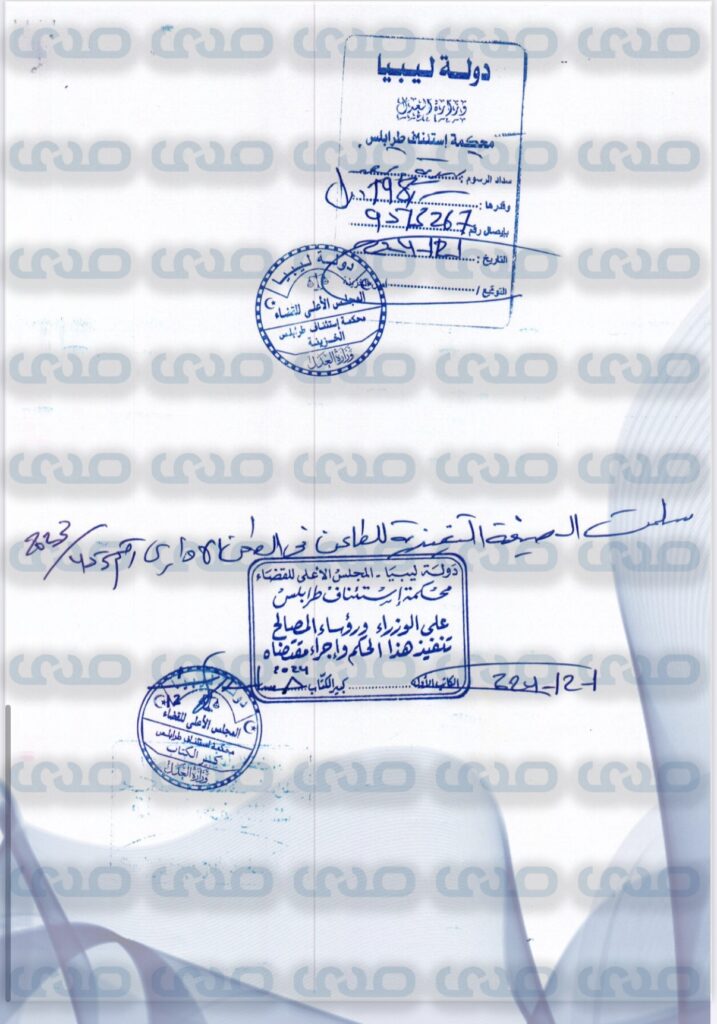 دولة ليبيا
وزارة العدل
محكمة إستئناف طرابلس
سداد الرسوم :
وقدرها : 198 د.ل
بإيصال رقم : 9573267
التاريخ :
التوقيع /
دولة ليبيا
المجلس الأعلى للقضاء
محكمة إستئناف طرابلس
الخزينة
وزارة العدل
سلمت الصيغة التنفيذية للطاعن في الطعن الاداري رقم 455/2023
دولة ليبيا - المجلس الأعلى للقضاء
محكمة إستئناف طرابلس
على الوزراء ورؤساء المصالح
تنفيذ هذا الحكم وإجراء مقتضاه
2024
الكاتب الأول كبير الكتاب
دولة ليبيا
المجلس الأعلى للقضاء
محكمة استئناف طرابلس
كبير الكتاب
وزارة العدل
صدى